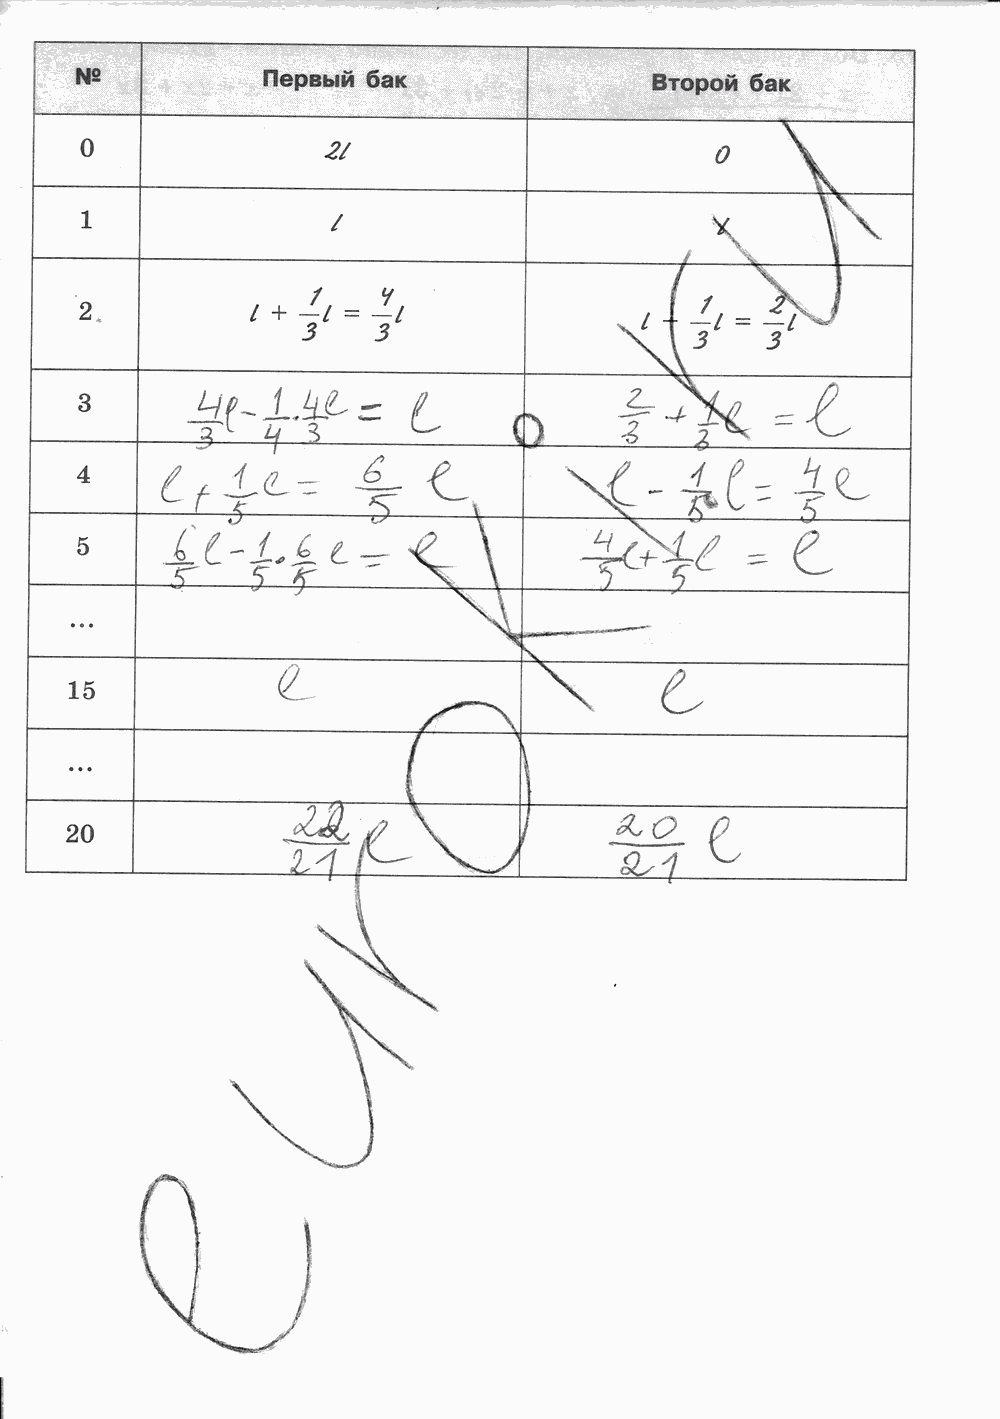 № Первый бак Второй бак
0 2l 0
1 l l
2 l + 1/3 l = 4/3 l l + 1/3 l = 2/3 l
3 4/3 l - 1/4 · 4/3 l = l 2/3 + 1/3 l = l
4 l + 1/5 l = 6/5 l l - 1/5 l = 4/5 l
5 6/5 l - 1/5 · 6/5 l = l 4/5 l + 1/5 l = l
...
15 l l
...
20 22/21 l 20/21 l